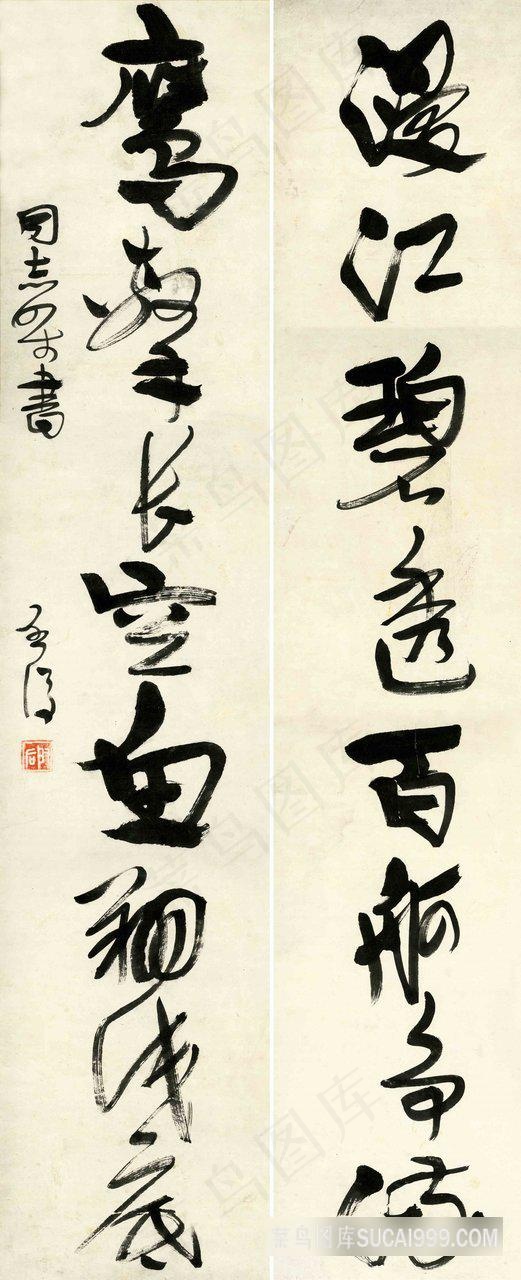 漫江碧透百舸争流
鹰擊长空鱼翔浅底
同志書
菜鸟图库SUCAI999.COM